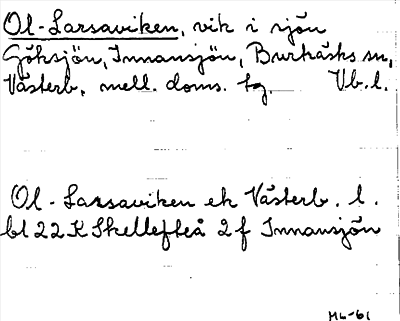 Ol-Larsaviken, vik i sjön
Göksjön, Innansjön, Burträsks sn,
Västerb. mell. doms. tg. Vb. l.
Ol-Larsaviken ek Västerb. l.
bl 22 K Skellefteå 2 f Innansjön
ML-61